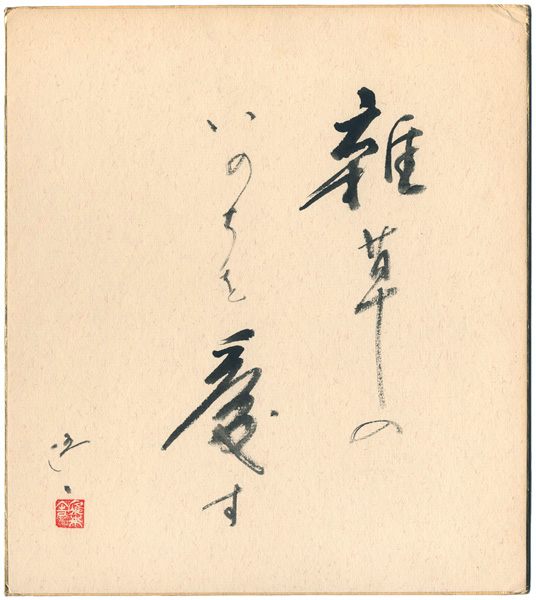 雑草の
いのちを愛す